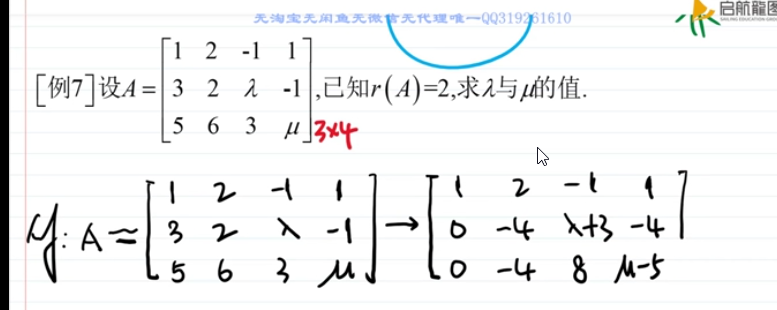 无淘宝无闲鱼无微信无代理唯一QQ319261610
启航龍图
[例7]设A= [1 2 -1 1; 3 2 λ -1; 5 6 3 μ] ,已知r(A)=2,求λ与μ的值.
3×4
: A = [1 2 -1 1; 3 2 λ -1; 5 6 3 μ] → [1 2 -1 1; 0 -4 λ+3 -4; 0 -4 8 μ-5]